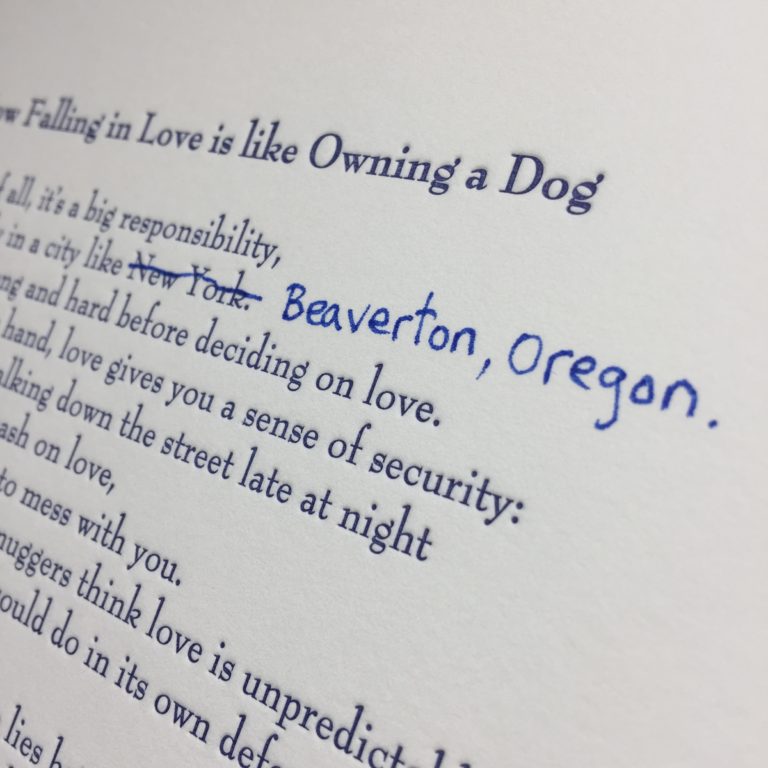 Falling in Love is like Owning a Dog
all, it's a big responsibility,
in a city like New York. Beaverton, Oregon.
and hard before deciding on love.
hand, love gives you a sense of security:
down the street late at night
on love,
to mess with you.
think love is unpredictable
do in its own
lies